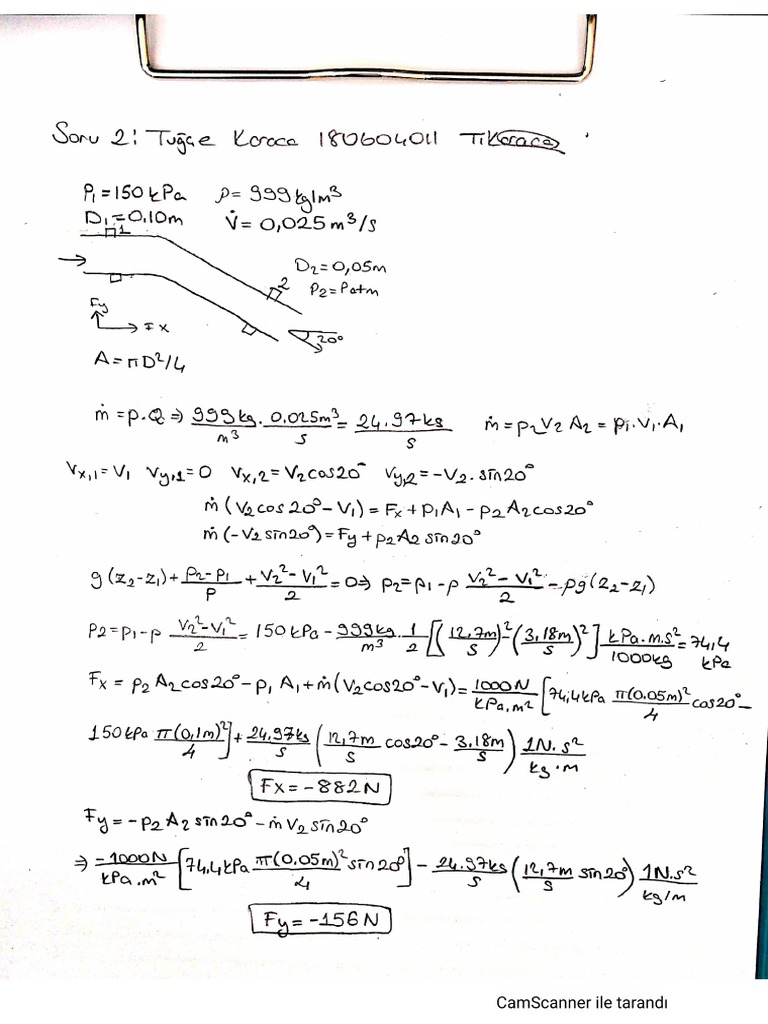 Soru 2: Tuğçe Karaca 180604011 TKaraca
P₁=150kPa ρ= 999kg/m³
D₁=0,10m V̇= 0,025m³/s
1
D₂=0,05m
2
P₂=Patm
Fy
Fx
20°
A=πD²/4
ṁ=ρ.Q⇒ 999kg/m³ . 0,025m³/s = 24.97kg/s ṁ=ρ₂V₂A₂=ρ₁.V₁.A₁
Vx,1=V₁ Vy,1=0 Vx,2=V₂cos20° Vy,2=-V₂.sin20°
ṁ(V₂cos20°-V₁)=Fx+p₁A₁-p₂A₂cos20°
ṁ(-V₂sin20°)=Fy+p₂A₂sin20°
g(z₂-z₁)+(p₂-p₁)/ρ+(V₂²-V₁²)/2=0⇒ p₂=p₁-ρ (V₂²-V₁²)/2-ρg(z₂-z₁)
P₂=p₁-ρ (V₂²-V₁²)/2=150kPa-999kg/m³.1/2[(12,7m/s)²-(3,18m/s)²]kPa.m.s²/1000kg=74,4kPa
Fx=p₂A₂cos20°-p₁A₁+ṁ(V₂cos20°-V₁)=1000N/kPa.m²[74,4kPa π(0.05m)²/4 cos20°-
150kPa π(0,1m)²/4]+24,97kg/s(12,7m/s cos20°-3,18m/s)1N.s²/kg.m
Fx=-882N
Fy=-p₂A₂sin20°-ṁV₂sin20°
⇒ -1000N/kPa.m²[74,4kPa π(0.05m)²/4 sin20°]-24.97kg/s(12,7m/s sin20°)1N.s²/kg/m
Fy=-156N
CamScanner ile tarandı